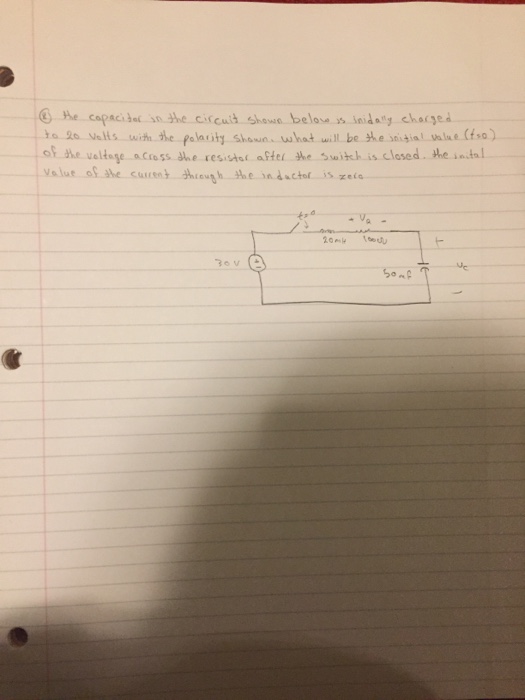 ② the capacitor in the circuit showe below is inidally charged
to 20 volts with the polarity shown. what will be the initial value (t=0)
of the voltage across the resistor after the switch is closed. the inital
value of the current through the inductor is zero
t=0
+ VR -
20mH 100Ω
+
30 V
50mF
Vc
-